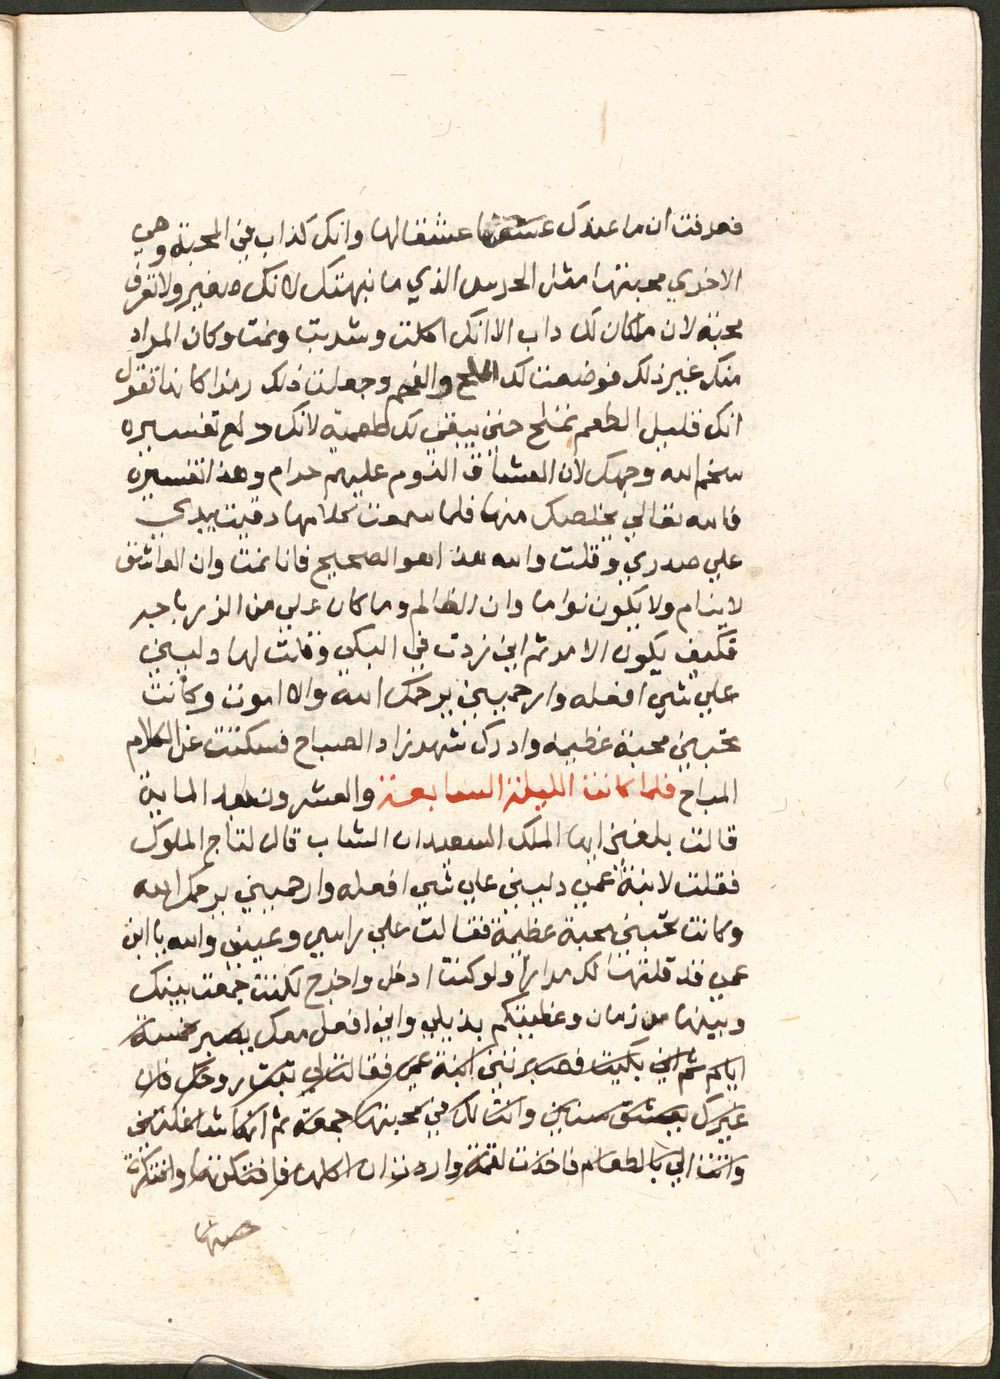 فعرفت ان ما عندك عشقها عشقا لها وانك كذاب في المحبة وهي
الاخري محبتها مثل الحرير الذي ما نبهتك لانك صغير ولا تعرف
محبة لان مكان لك داب الا انك اكلت وشربت ونمت وكان المراد
منك غير ذلك فوضعت لك الملح والفحم وجعلت ذلك رمزا كانها تقول
انك قليل الطعم تملح حتى يبقي لك طعمية لانك دلع تفسيره
سخم الله وجهك لان العشاق النوم عليهم حرام وهذا تفسيره
فالله تعالي يخلصك منها فلما سمعت كلامها دقيت بيدي
علي صدري وقلت والله هذا هو الصحيح فانا نمت وان العاشق
لا ينام ولا يكون نواما وان الظالم وما كان علي من الزرباجه
فكيف يكون الامر ثم اني زدت في البكي وقلت لها دليني
علي شي افعله وارحميني يرحمك الله والا اموت وكانت
تحبني محبة عظيمة وادرك شهرزاد الصباح فسكتت عن الكلام
المباح فلما كانت الليلة السابعة والعشرون بعد الماية
قالت بلغني ايها الملك السعيد ان الشاب قال لتاج الملوك
فقلت لابنة عمي دليني علي شي افعله وارحميني يرحمك الله
وكانت تحبني محبة عظيمة فقالت علي راسي وعيني والله يا ابن
عمي قد قلتها لك مرارا ولو كنت ادخل واخرج لكنت جمعت بينك
وبينها من زمان وغطيتكم بذيلي واني افعل معك بصبر خمسة
ايام ثم اني بكيت فصبرتني ابنة عمي فقالت لي تبت روحك فان
غيرك بعشق سنين وانت لك في محبتها جمعة ثم انها شاغلتني
واتت الي بالطعام فاخذت لقمة واردت ان اكلها فافتكرتها وافتكرت
حصتها